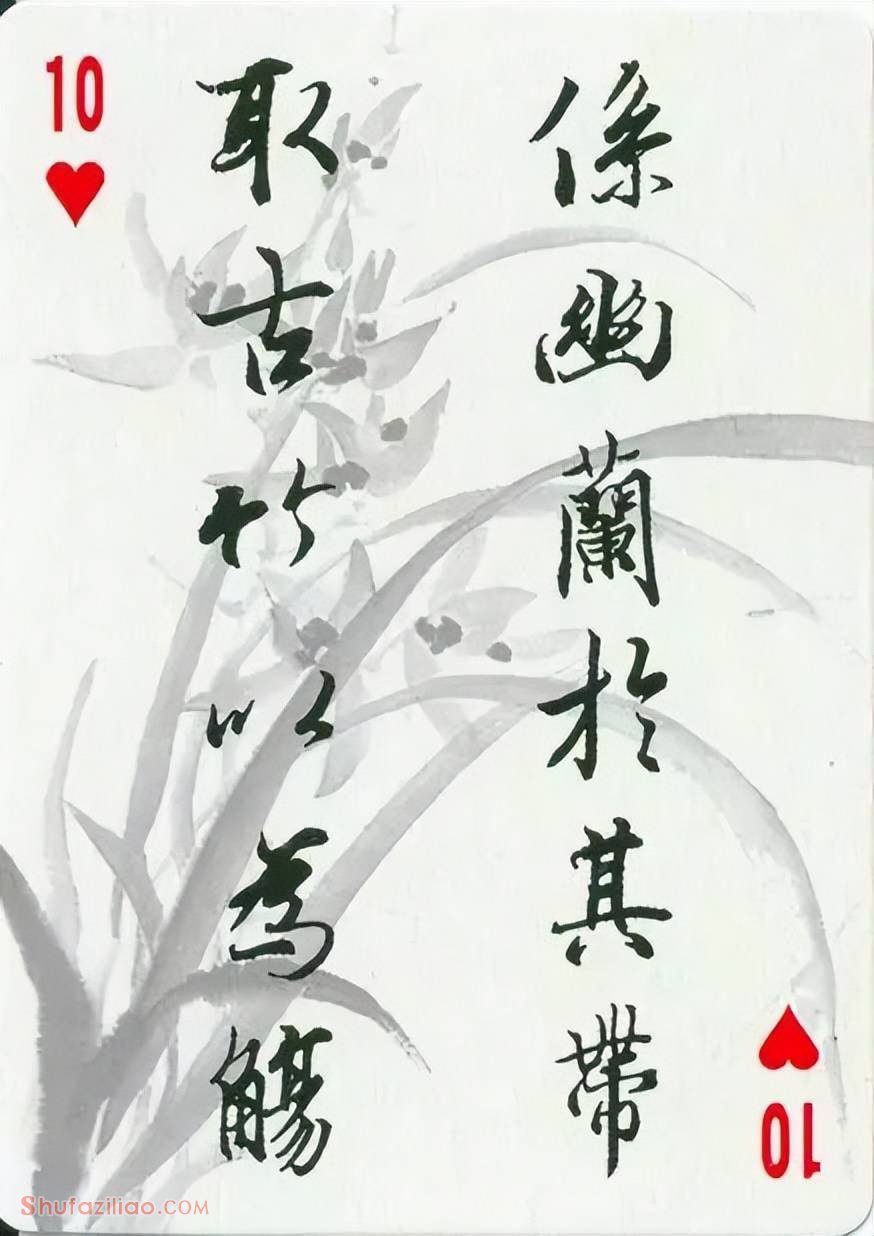 10
係幽蘭於其帶
取古竹以為觴
10
Shufaziliao.COM